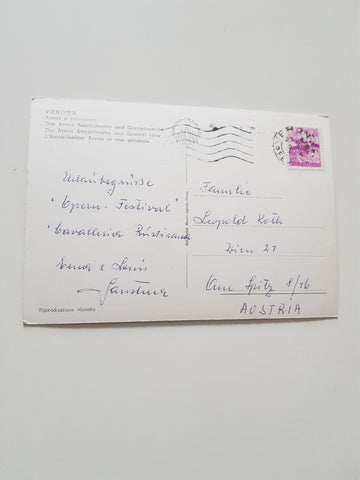 VERONA
Arena e panorama
Das Arena Amphitheater und Gesamtansicht
The Arena Amphitheatre and General view
L'Amphithéâtre Arena et vue générale
Urlaubsgrüße
"Opern-Festival"
"Cavalleria Rusticana"
Erna &
Familie
Leopold Koth
Wien 21
Am Spitz 8/16
AUSTRIA
Riproduzione vietata